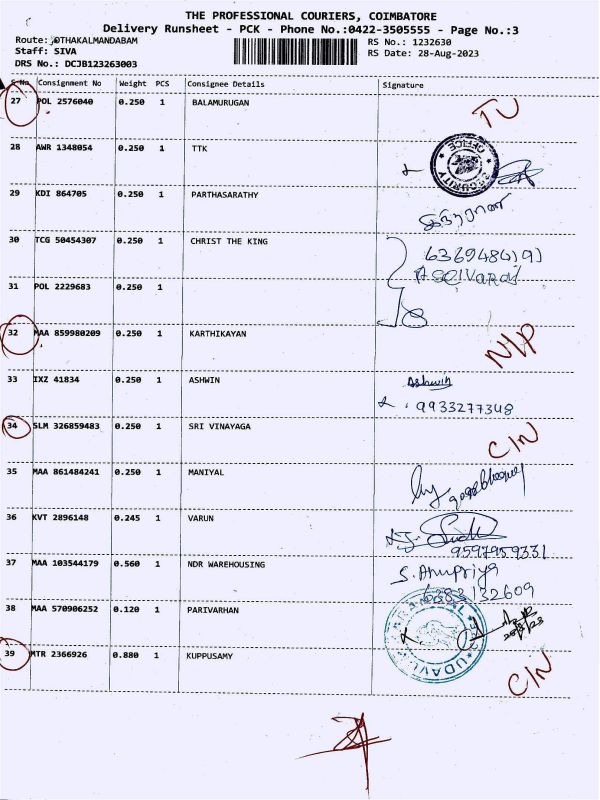 THE PROFESSIONAL COURIERS, COIMBATORE
Delivery Runsheet - PCK - Phone No.:0422-3505555 - Page No.:3
Route: OTHAKALMANDABAM
RS No.: 1232630
Staff: SIVA
RS Date: 28-Aug-2023
DRS No.: DCJB123263003
S No Consignment No Weight PCS Consignee Details Signature
27 POL 2576040 0.250 1 BALAMURUGAN TU
28 AWR 1348054 0.250 1 TTK SECURITY OFFICE
29 KDI 864705 0.250 1 PARTHASARATHY
30 TCG 50454307 0.250 1 CHRIST THE KING
31 POL 2229683 0.250 1
32 MAA 859980209 0.250 1 KARTHIKAYAN N/P
33 IXZ 41834 0.250 1 ASHWIN Ashwin
9933277348
34 SLM 326859483 0.250 1 SRI VINAYAGA C/N
35 MAA 861484241 0.250 1 MANIYAL
36 KVT 2896148 0.245 1 VARUN
9597959331
37 MAA 103544179 0.560 1 NDR WAREHOUSING S. Anupriya
6383132609
38 MAA 570906252 0.120 1 PARIVARHAN
39 MTR 2366926 0.880 1 KUPPUSAMY C/N